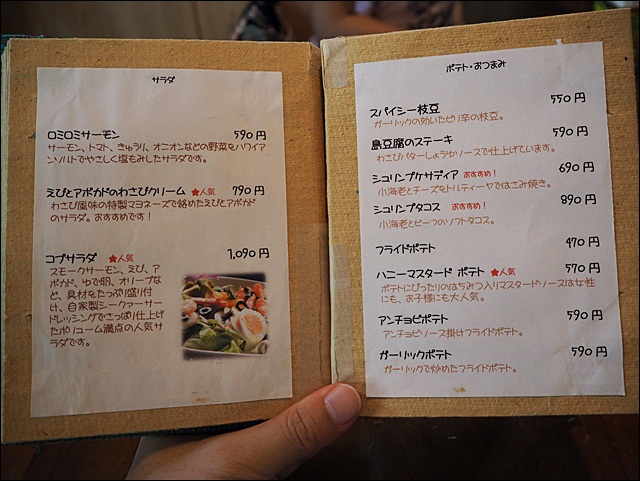 サラダ
ロミロミサーモン 590円
サーモン、トマト、きゅうり、オニオンなどの野菜をハワイア
ンソルトでやさしく塩もみしたサラダです。
えびとアボカドのわさびクリーム ★人気 790円
わさび風味の特製マヨネーズで絡めたえびとアボカド
のサラダ。おすすめです！
コブサラダ ★人気 1,090円
スモークサーモン、えび、ア
ボカド、ゆで卵、オリーブな
ど、具材をたっぷり盛り付
け、自家製シークァーサー
ドレッシングでさっぱり仕上げ
たボリューム満点の人気サ
ラダです。
ポテト・おつまみ
スパイシー枝豆 550円
ガーリックの効いたピリ辛の枝豆。
島豆腐のステーキ 590円
わさびバターしょうゆソースで仕上げています。
シュリンプケサディア おすすめ！ 690円
小海老とチーズをトルティーヤではさみ焼き。
シュリンプタコス おすすめ！ 890円
小海老とビーフのソフトタコス。
フライドポテト 470円
ハニーマスタード ポテト ★人気 570円
ポテトにぴったりのはちみつ入りマスタードソースは女性
にも、お子様にも大人気。
アンチョビポテト 590円
アンチョビソース掛けフライドポテト。
ガーリックポテト 590円
ガーリックで炒めたフライドポテト。